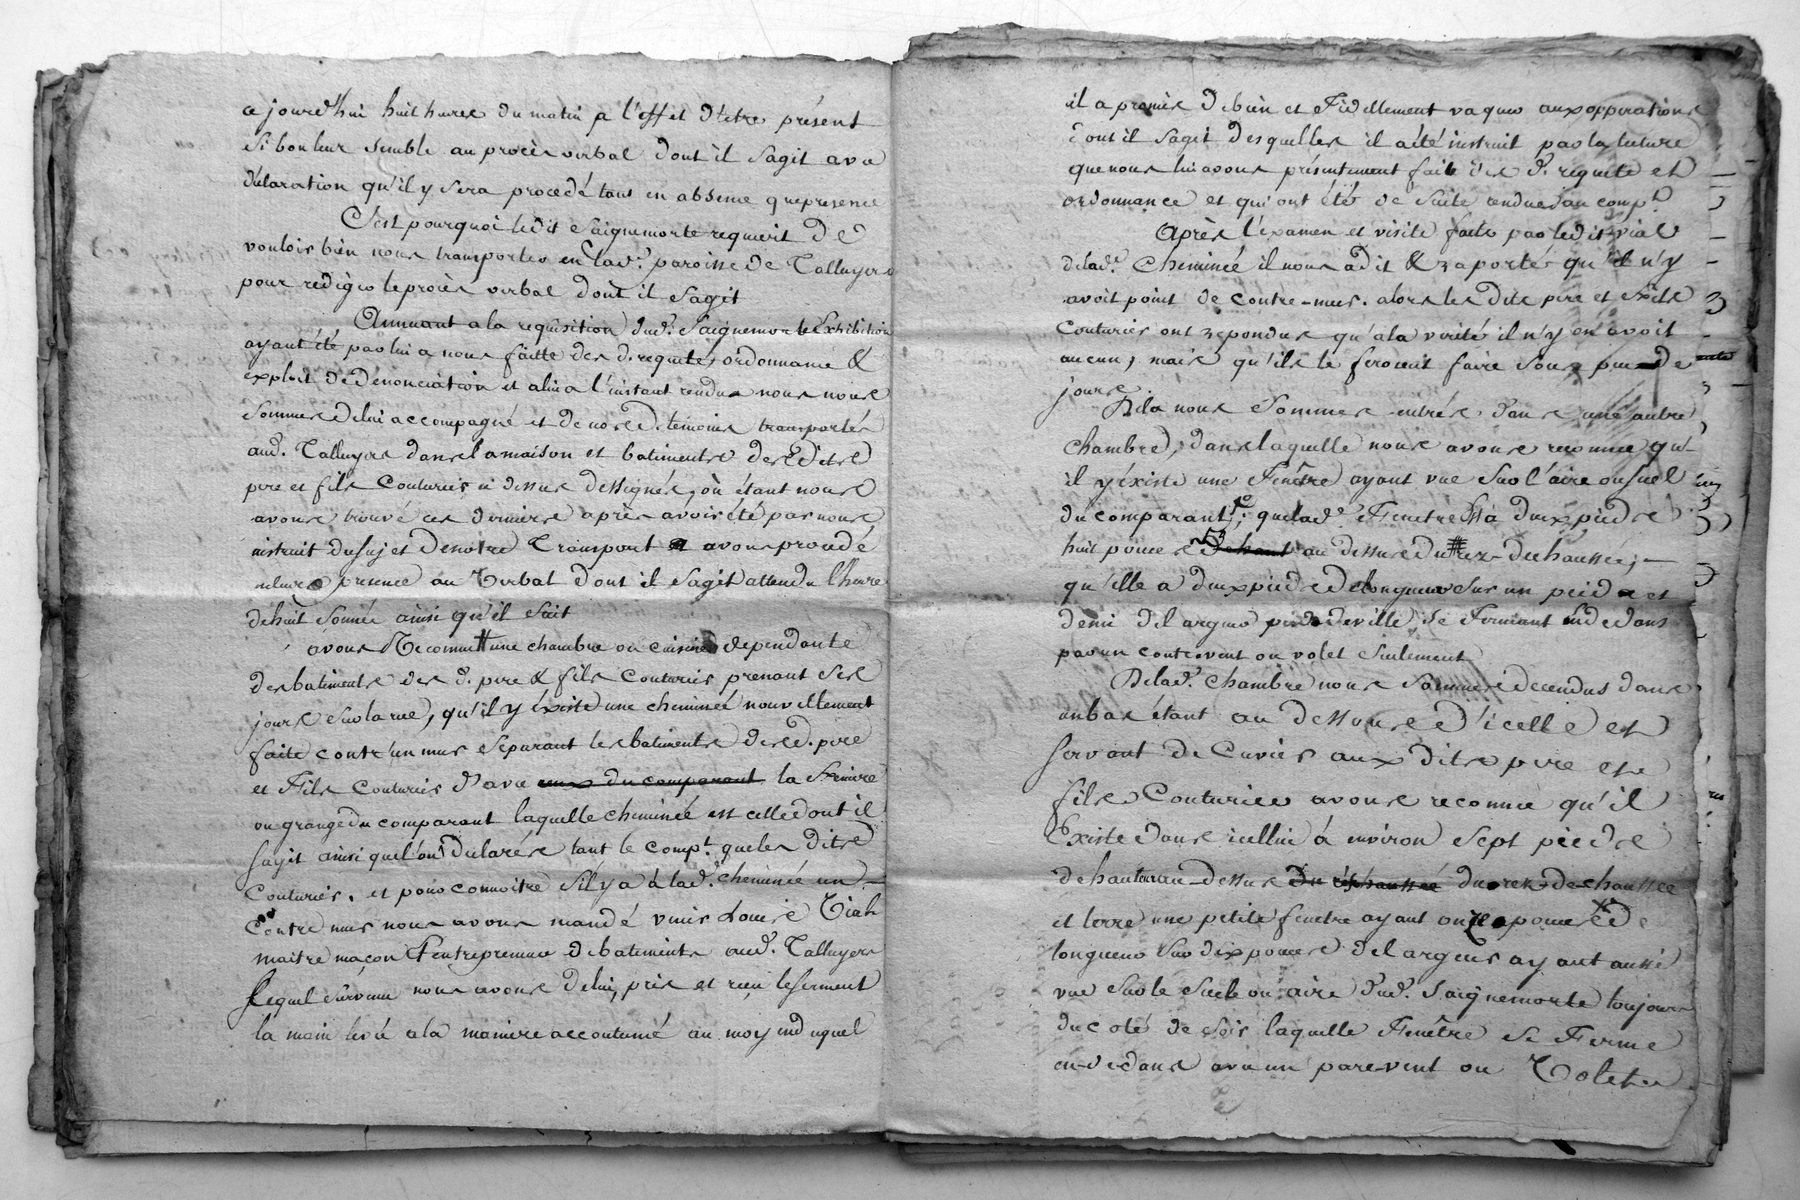 ce jourd'hui huit heures du matin p l'effet d'être présent
si bon leur semble au procès verbal dont il sagit avec
déclaration qu'il y sera procedé tant en absence q presence
C'est pourquoi ledit Saignemorte requiert de
vouloir bien nous transporter en lad.e paroisse de Talluyers
pour rédiger le procès verbal dont il sagit
Annuant a la requisition dud.t Saignemorte Exhibition
ayant été par lui a nous faitte des d. requete, ordonnance &
exploit de dénonciation et a lui a l'instant rendus nous nous
sommes de lui accompagné et de nosd. témoins transportés
aud. Talluyers dans la maison et batiments desdits
pere et fils Couturier ci dessus dessignés, où étant nous
avons trouvé ces derniers après avoir été par nous
instruit du sujet de notre transport avons procedé
en leurs presence au Verbal dont il sagit attendu l'heure
de huit sonnée ainsi qu'il suit
avons Reconnu une chambre ou cuisine dependante
des batiments des d. pere & fils Couturier prenant ses
jours sur la rue, qu'il y éxiste une cheminée nouvellement
faite contr'un mur separant les batiments desd. pere
et Fils Couturier d'avec ceux du comparant la Feniere
ou grange du comparant laquelle cheminée est celle dont il
sagit ainsi que l'ont Declarés tant le comp.t que les dits
Couturier. et pour connoitre s'il y a à lad.e cheminée un
Contre mur nous avons mandé venir Louis Vial
maitre maçon & entrepreneur de batiments aud. Talluyers
Lequel survenu nous avons de lui, pris et reçu le serment
la main levée a la maniere accoutumé au moyen duquel
il a promis de bien et Fidellement vaquer aux opperations
dont il sagit desquelles il a été instruit par la lecture
que nous lui avons présentement faite des d. requete et
ordonnance et qui ont étés de suite rendues au comp.t
Après l'éxamen et visite faite par ledit vial
de lad.e Cheminée il nous a dit & raporté qu'il n'y
avoit point de contre-mur. alors les Dits pere et Fils
Couturier ont repondus qu'a la verité il n'y en avoit
aucun, mais qu'ils le feroient faire sous peu de
jours.
De la nous Sommes entrés dans une autre
chambre, dans laquelle nous avons reconnu qu'
il y éxiste une Fenêtre ayant vue sur l'aire ou suel
du comparant, que lad.e Fenetre est à deux pieds
huit pouces de haut au dessus du rez-de chaussée;
qu'elle a deux pieds de longueur sur un pied et
demi de largeur pied de ville se Fermant en dedans
par un contrevent ou volet seulement
De lad.e chambre nous Sommes decendus dans
un bas étant au Dessous d'icelle et
servant de Cuvier aux Dits pere et
fils Couturier avons reconnu qu'il
Existe dans icellui à environ Sept pieds
de hauteur au-dessus du réschaussée du rez-de-chaussée
et terre une petite fenetre ayant onze pouces de
longueur sur dix pouces de largeur ayant aussi
vue sur le suel ou aire dud.t Saignemorte toujours
du coté de soir laquelle Fenêtre se Ferme
en-dedans avec un parevent ou Volet